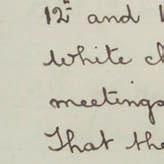 12" and
white
meetings
That the